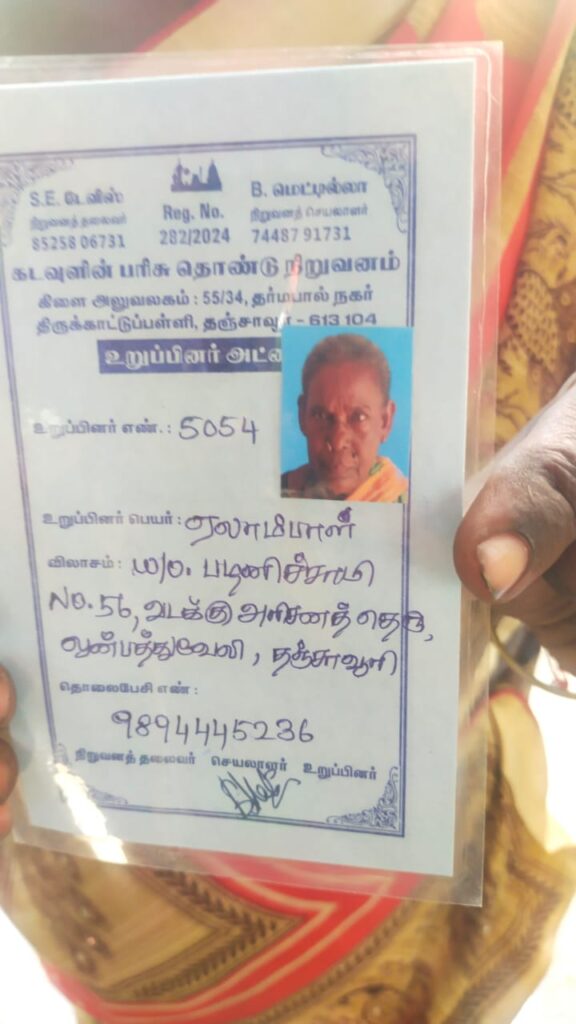 S.E. டேவிஸ்
நிறுவனத் தலைவர்
85258 06731
Reg. No.
282/2024
B. மெட்டில்லா
நிறுவனத் செயலாளர்
74487 91731
கடவுளின் பரிசு தொண்டு நிறுவனம்
கிளை அலுவலகம் : 55/34, தர்மபால் நகர்
திருக்காட்டுப்பள்ளி, தஞ்சாவூர் - 613 104
உறுப்பினர்
உறுப்பினர் எண். : 5054
உறுப்பினர் பெயர் : ஏலாம்பாள்
விலாசம் : W/O. பழனிச்சாமி
NO. 56, வடக்கு அரிசனத் தெரு,
ஒன்பத்துவேலி, தஞ்சாவூர்
தொலைபேசி எண் :
9894445236
நிறுவனத் தலைவர் செயலாளர் உறுப்பினர்